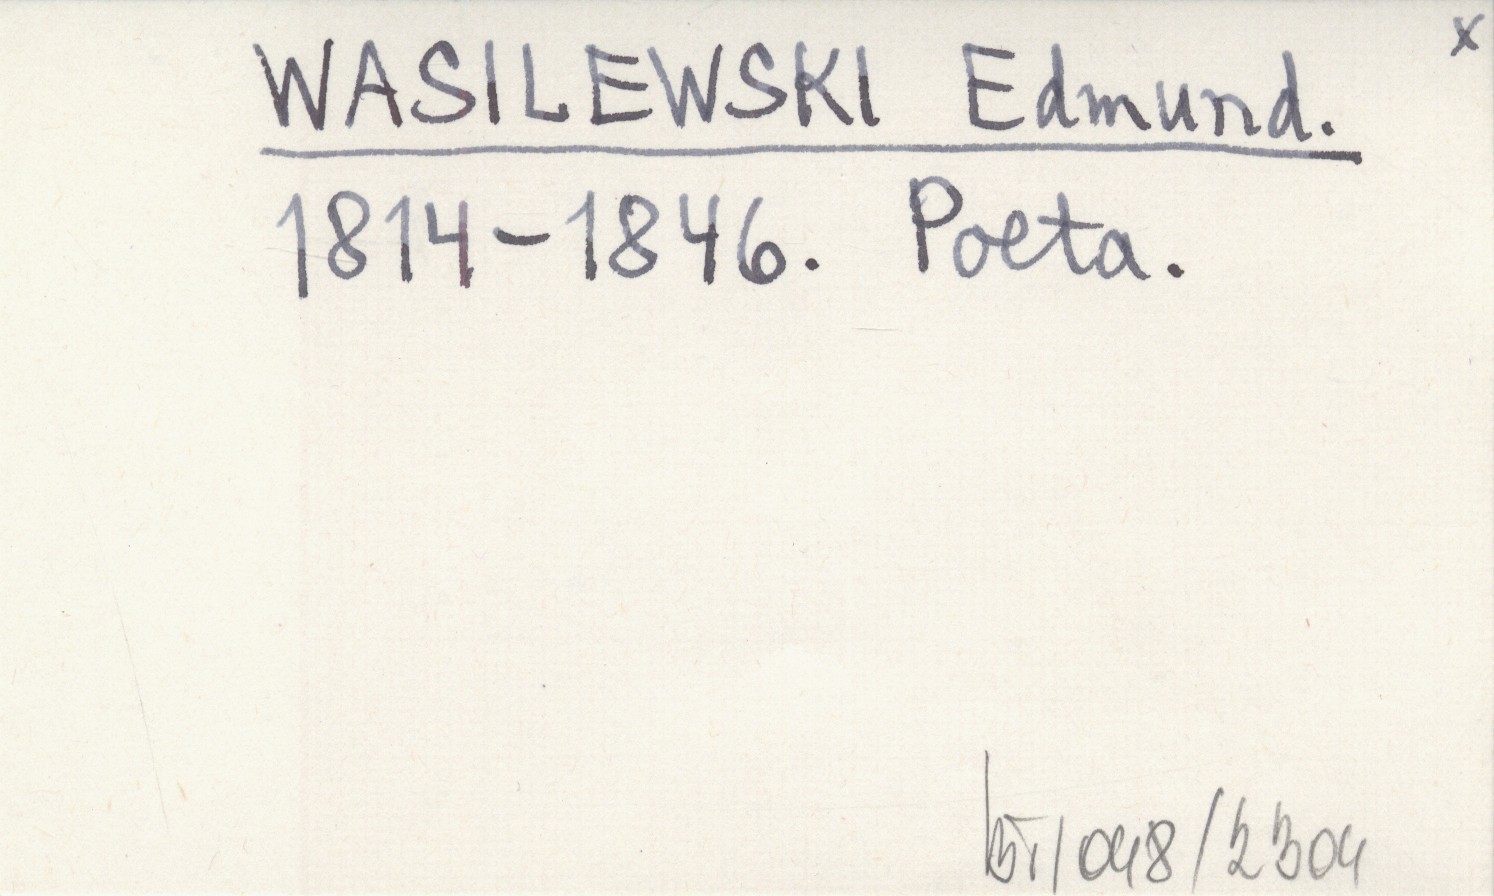 x
WASILEWSKI Edmund.
1814-1846. Poeta.
/048/2304